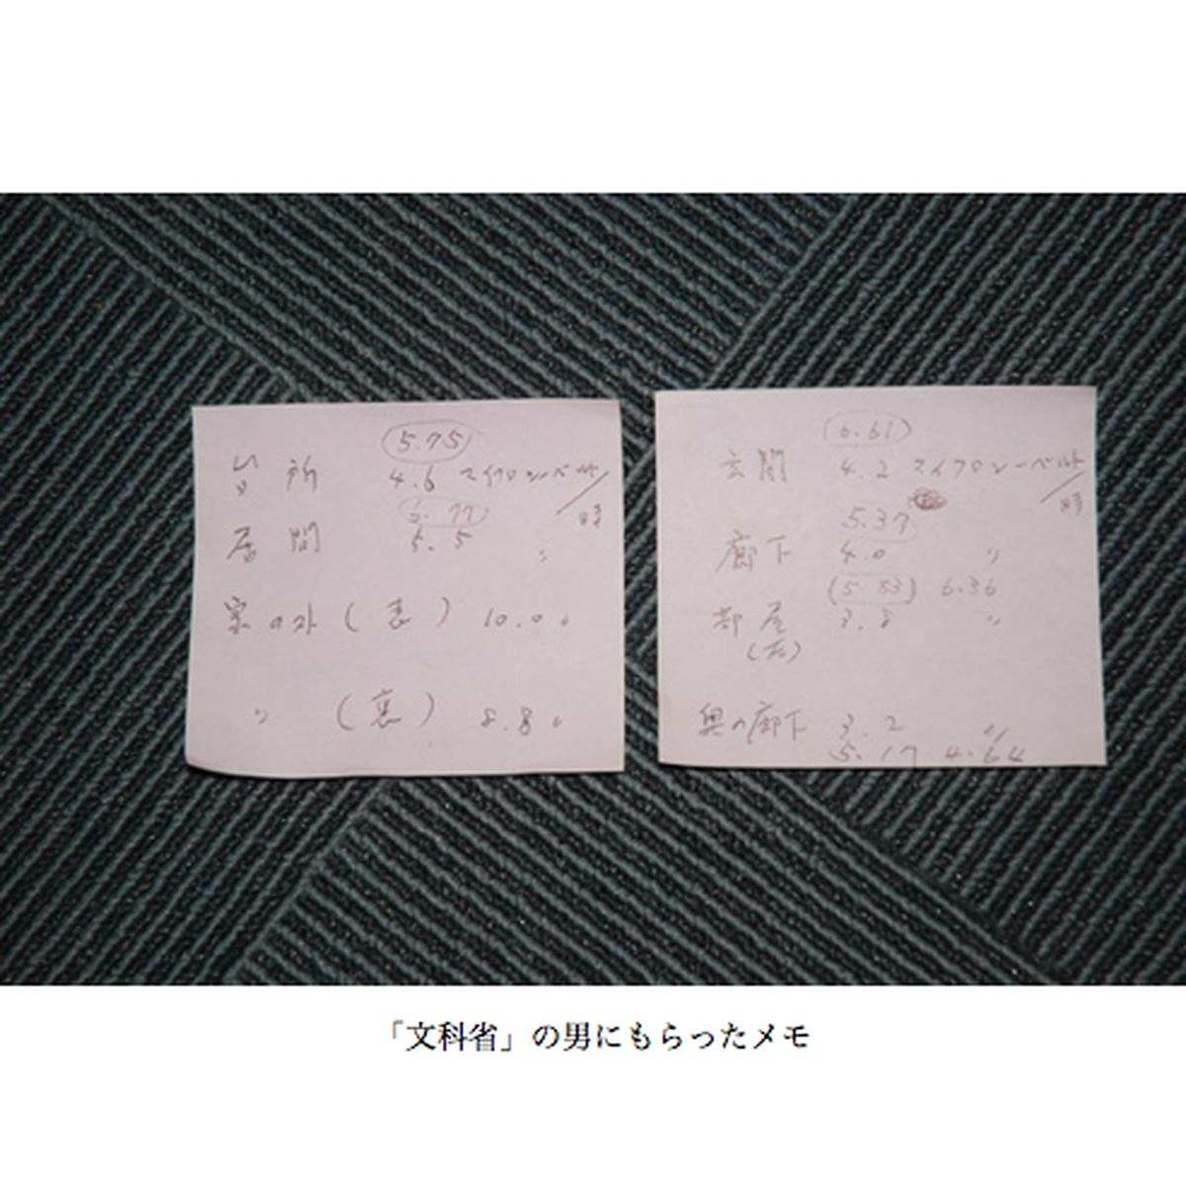 5.75
台所 4.6 マイクロシーベルト/時
居間 5.5 〃
家の外(表) 10.0 〃
〃 (裏) 8.8 〃
玄関 4.2 マイクロシーベルト/時
5.37
廊下 4.0 〃
(5.53) 6.36
部屋 〃
奥の廊下 3.2 〃
5.17 4.64
「文科省」の男にもらったメモ